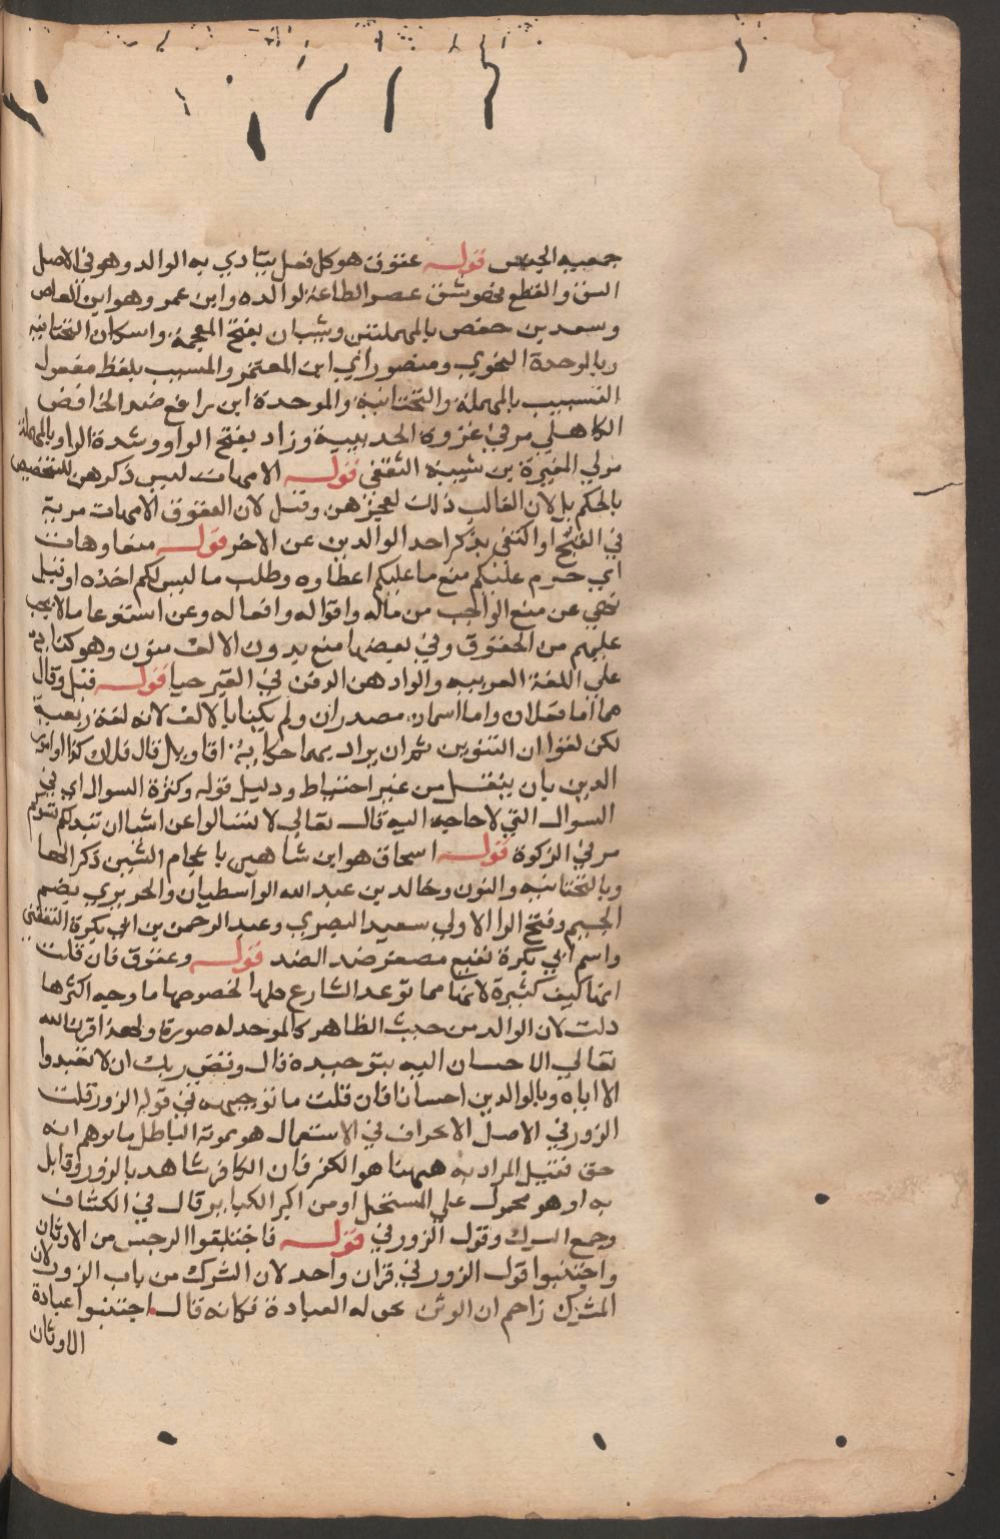 قوله عقوق هو كل فعل يتاذي به الوالد وهو في الاصل
الشق والقطع فهو شق عصى الطاعة لوالده وابن عمر وهو ابن العاص
وسعد بن حفص بالمهملتين وشيبان بفتح المعجمة واسكان التحتانيه
وبالموحدة النحوي ومنصور اي ابن المعتمر والمسيب بلفظ مفعول
التسييب بالمهملة والتحتانية والموحدة ابن رافع ضد الخافض
الكاهلي مر في غزوة الحديبية ووراد بفتح الواو وشدة الراو بالمهملة
مولي المغيرة بن شيبة الثقفي قوله الامهات ليس ذكرهن للتخصيص
بالحكم بل لان الغالب ذلك لعجزهن وقيل لان لعقوق الامهات مزية
في القبح او اكتفي بذكر احد الوالدين عن الاخر قوله منعا وهات
اي حرم عليكم منع ما عليكم اعطاوه وطلب ما ليس لكم اخذه او قيل
نهي عن منع الواجب من ماله واقواله وافعاله وعن استدعا ما لا يجب
عليهم من الحقوق وفي بعضها منع بدون الالف منون وهو كتابة
علي اللغة العربيه والواد هن الدفن في القبر حيا قوله قيل وقال
هما اما فعلان واما اسمان مصدران ولم يكتبا بالالف لانه لغة ربعية
لكن لقوا ان التنوين ثم ان يراد بهما حكاية اقاويل قال فلان كذا او امور
الدين بان ينقل من غير احتياط ودليل قوله وكثرة السوال اي في
السوال التي لا حاجه اليه قال تعالي لا تسالوا عن اشيا ان تبد لكم تسوكم
مر في الزكوة قوله اسحاق هو ابن شاهين باعجام الشين ذكر الها
وبالتحتانيه والنون وخالد بن عبد الله الواسطيان والجريري بضم
الجيم وفتح الرا الاولي سعيد البصري وعبد الرحمن بن ابي بكرة الثقفي
واسم ابي بكرة نفيع مصغر ضد الضد قوله وعقوق فان قلت
انها كيف كثيرة لانها مما توعد الشارع عليها لخصوصها ما وجه اكثرها
قلت لان الوالد من حيث الظاهر كالموجد له صورة ولهذا قرن الله
تعالي الاحسان اليه بتوحيده قال وقضي ربك ان لا تعبدوا
الا اياه وبالوالدين احسانا فان قلت ما توجيهه في قوله الزور قلت
الزور في الاصل الانحراف في الاستعمال هو تمويه الباطل بما يوهم انه
حق فقيل المراد به ههنا هو الكفر فان الكافر شاهد بالزور وقايل
به او هو محمول علي المستحل او من اكبر الكباير قال في الكشاف
وجمع الشرك وقول الزور في قوله فاجتنبوا الرجس من الاوثان
واجتنبوا قول الزور في قران واحد لان الشرك من باب الزور لان
المشرك زاعم ان الوثن تحق له العبادة فكانه قال اجتنبوا عبادة
الاوثان